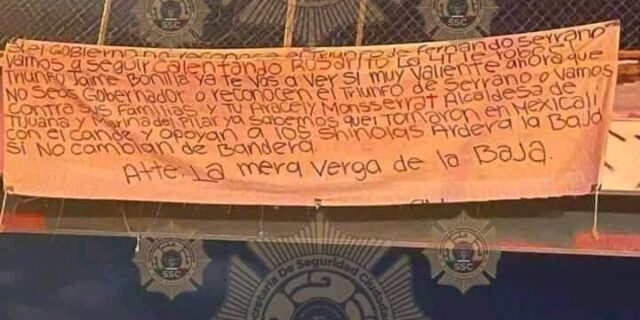 Si el Gobierno no reconoce el Triunfo de Fernando Serrano
Vamos a seguir Calentando Rosarito La 4T le
Triunfo Jaime Bonilla ya Te Vas a Ver si muy Valiente ahora que
No seas Gobernador o reconocen el Triunfo de Serrano o Vamos
Contra las Familias y Tu Aracely Monsserrat Alcaldesa de
Tijuana y Marina del Pilar ya sabemos que Tornaron en Mexicali
con el Cande y apoyan a los Shinolas Ardera la Baja
si No cambian de Bandera.
Atte. La mera Verga de la Baja.
SSC
SSC
SSC
SSC
Secretaría De Seguridad Ciudadana